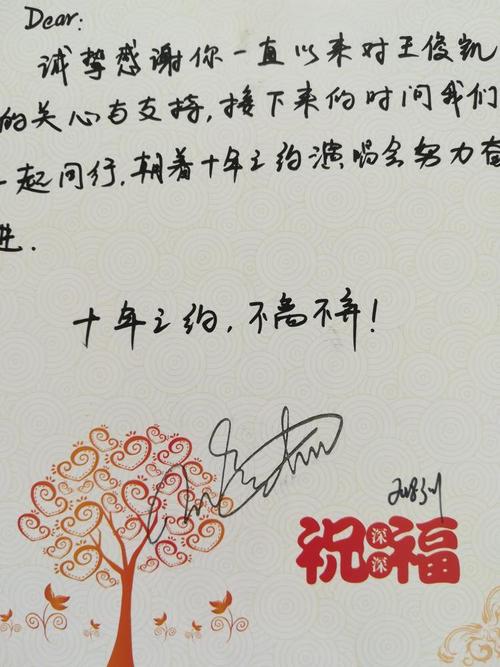 Dear:
诚挚感谢你一直以来对王俊凯
的关心与支持,接下来的时间我们
一起同行,朝着十年之约演唱会努力奋
进.
十年之约,不离不弃!
祝深深福